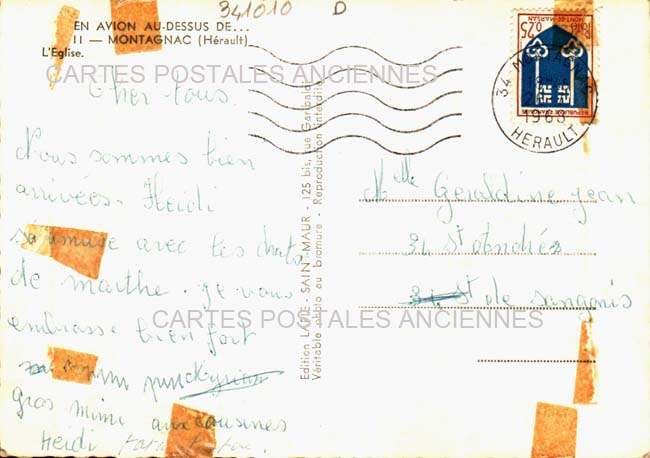 341010 D
EN AVION AU-DESSUS DE...
11 — MONTAGNAC (Hérault)
L'Eglise.
CARTES POSTALES ANCIENNES
Cher tous
Nous sommes bien
arrivées. Heidi
s'amuse avec les chats
de marthe. je vous
embrasse bien fort
gros mimi aux cousines
Heidi
CARTES POSTALES ANCIENNES
Edition LAPIE - SAINT-MAUR - 125 bis, rue Garibaldi
Véritable photo au bromure - Reproduction interdite
0,25
MONT-DE-MARSAN
REPUBLIQUE FRANÇAISE
34 MONTAGNAC
1968
HERAULT
Mlle Géraldine Jean
34 St André
34 St de sangonis